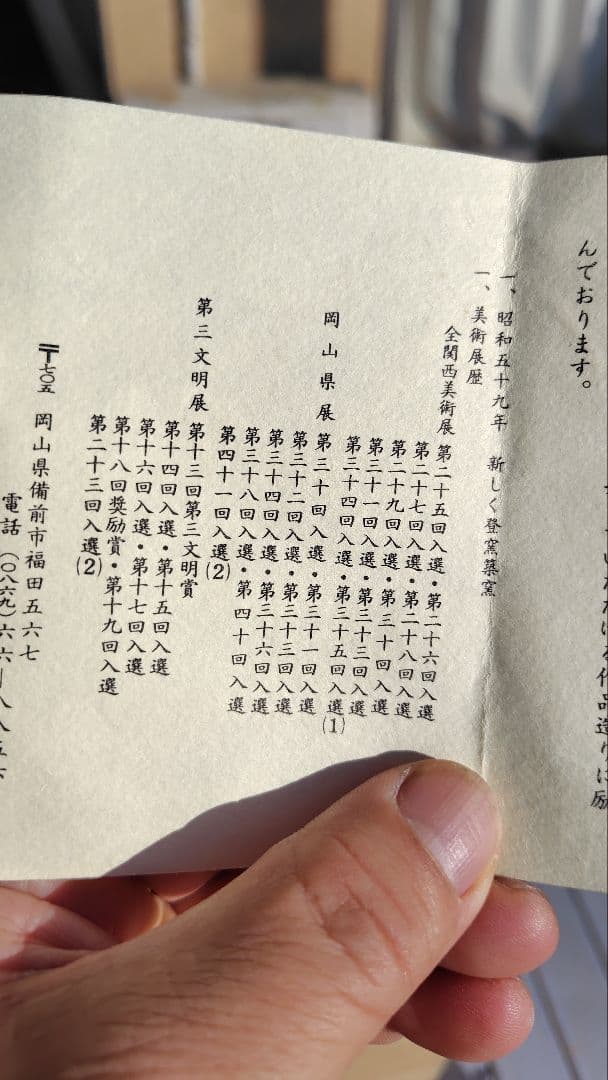 ける作品造りに励
んでおります。
一、昭和五十九年 新しく登窯築窯
一、美術展歴
全関西美術展 第二十五回入選・第二十六回入選
第二十七回入選・第二十八回入選
第二十九回入選・第三十回入選
第三十一回入選・第三十三回入選
第三十四回入選・第三十五回入選(1)
岡山県展 第三十回入選・第三十一回入選
第三十二回入選・第三十三回入選
第三十四回入選・第三十六回入選
第三十八回入選・第四十回入選
第四十一回入選(2)
第三文明展 第十三回第三文明賞
第十四回入選・第十五回入選
第十六回入選・第十七回入選
第十八回奨励賞・第十九回入選
第二十三回入選(2)
〒七〇五 岡山県備前市福田五六七
電話 (〇八六九)六六―八八五六